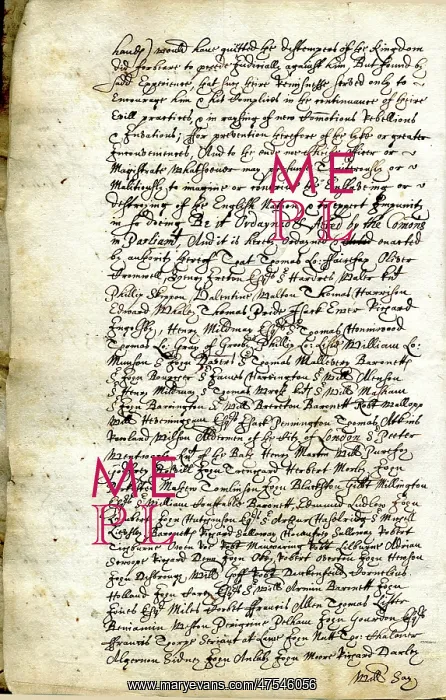 hands) would have quitted the distempers of the Kingdom
did forbeare to proceed Judicially against him But found by
sadd Experience that such their Remissness served only to
Encourage him & his Complices in the continuance of their
Evill practices & in raysing of new Comotions Rebellions
& Invasions; ffor prevention therefore of the like or greater
Inconveniences, And to the end noe Cheife Officer or
Magistrate whatsoever may Traiterously or
Malitiously to imagine or contrive the enslaving or
destroying of the English Nation & to expect Impunity
in so doing Be it Ordayned & Acted by the Comons
in Parliamt And it is hereby Ordayned enacted
by authority thereof That Thomas Lo: ffairfax Oliver
Cromwell Henry Ireton Esqrs Sr Hardres Waller Kt
Phillip Skippon Valentine Walton Thomas Harrison
Edward Whaley Thomas Pride Isack Ewer Richard
Ingolsby, Henry Mildmay Esqs Thomas Honnwood
Thomas Lo: Gray of Groby Phillip Lo: Lisle William Lo:
Munson Sr John Sr Thomas Mallevery Barronetts
Sr John Bourcher Sr James Harrington Sr Will
Sr Henry Mildmay Sr Thomas Wroth Kts Sr Will Masham
Sr John Barrington Sr Will Brereton Barronett Robt Wallopp
Will Heveningham Esqs Isack Pennington Thomas Atkins
Rowland Wilson Aldermen of the Citty of London Sr Peter
Wentworth Kt of the Bath Henry Martin Will Pureffoy
Will John Trenchard Herbert Morley John
Tomlinson John Blackston Gilbt Millington
Sr William Barronett, Edmund Ludlow John
John Hutchinson Esqs Sr Arthur Haselrigg Sr
Barronetts Richard Salloway Humfrey Salloway Robert
Tichburne Owen Roe Robt Manwaring Robt Lilburne Adrian
Scroope Richard Dean John Okey Robert Overton John
John Desbrough Will Goff Cornelius
Holland John Esqs Sr Will Armin Barronett John
Jones Esqs Miles Corbet ffrancis Allen Thomas Lister
Benjamin Weston Peregrine Pelham John Gourdon Esqs
ffrancis Thorpe Seriant at Law John Nutt Tho: Chaloner
Algernon Sidney John Anlaby John Moore Richard Darley
Will Say
ME
PL
ME
PL
www.maryevans.com/47546056